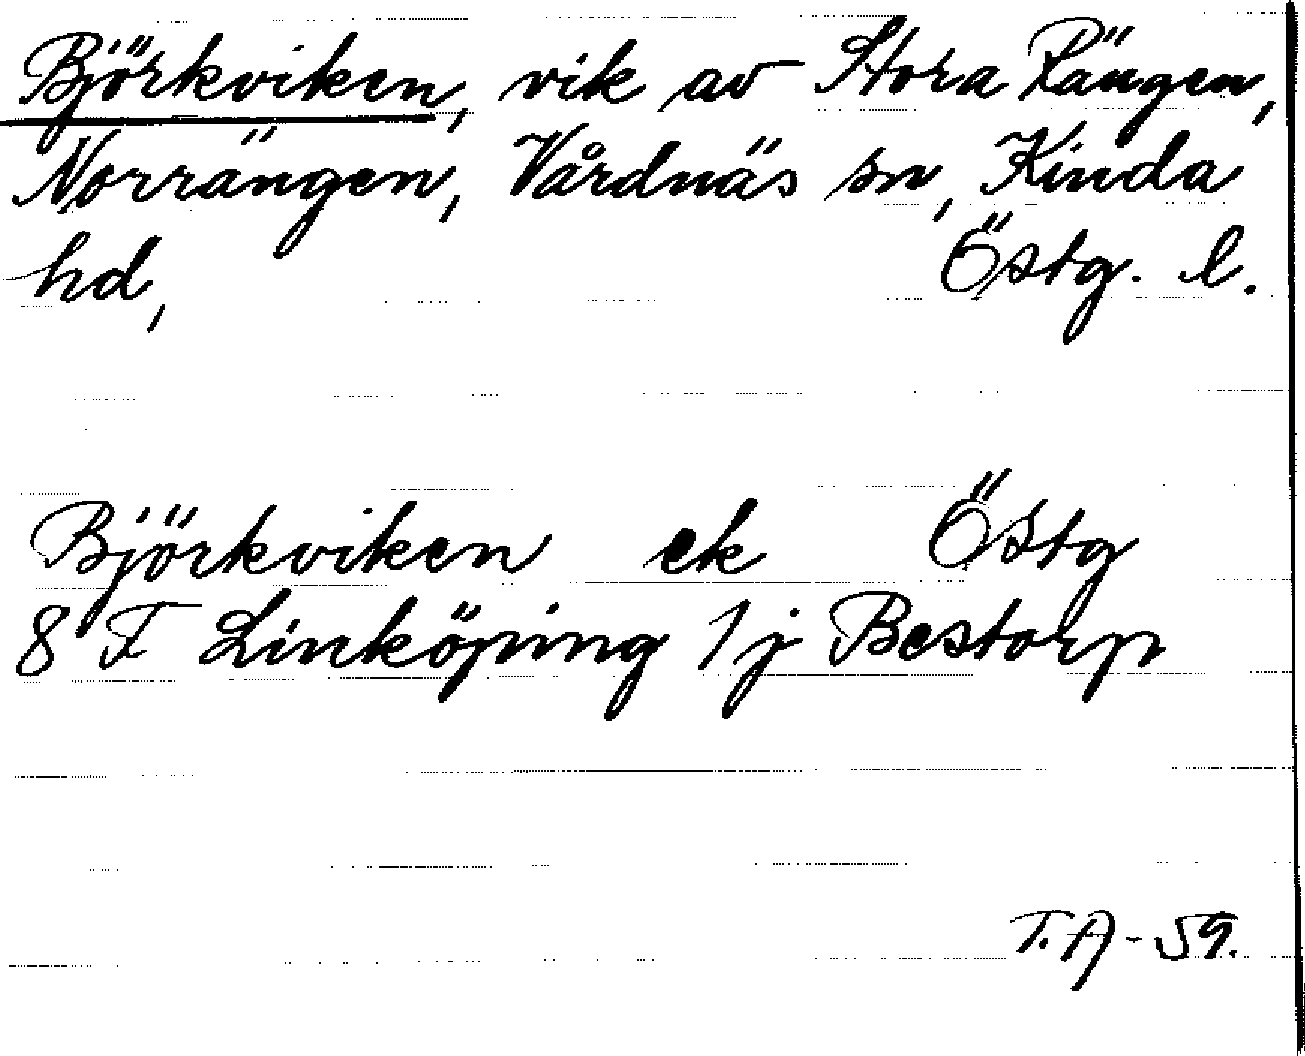 Björkviken, vik av Stora Rängen,
Norrängen, Vårdnäs sn, Kinda
hd, Östg. l.
Björkviken ek Östg
8 F Linköping 1j Bestorp
T.A-59.